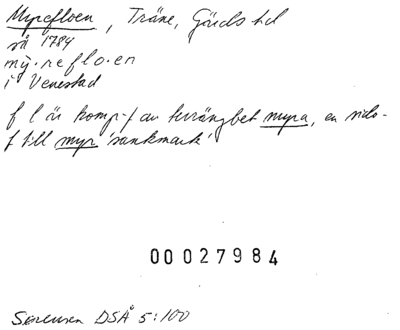 Myrefloen, Träne, Gärds hd
så 1784
my.reflo.en
i Venestad
f l är komp-f av terrängbet myra, en sido-
f till myr 'sankmark'
00027984
Sørensen DSÅ 5:100